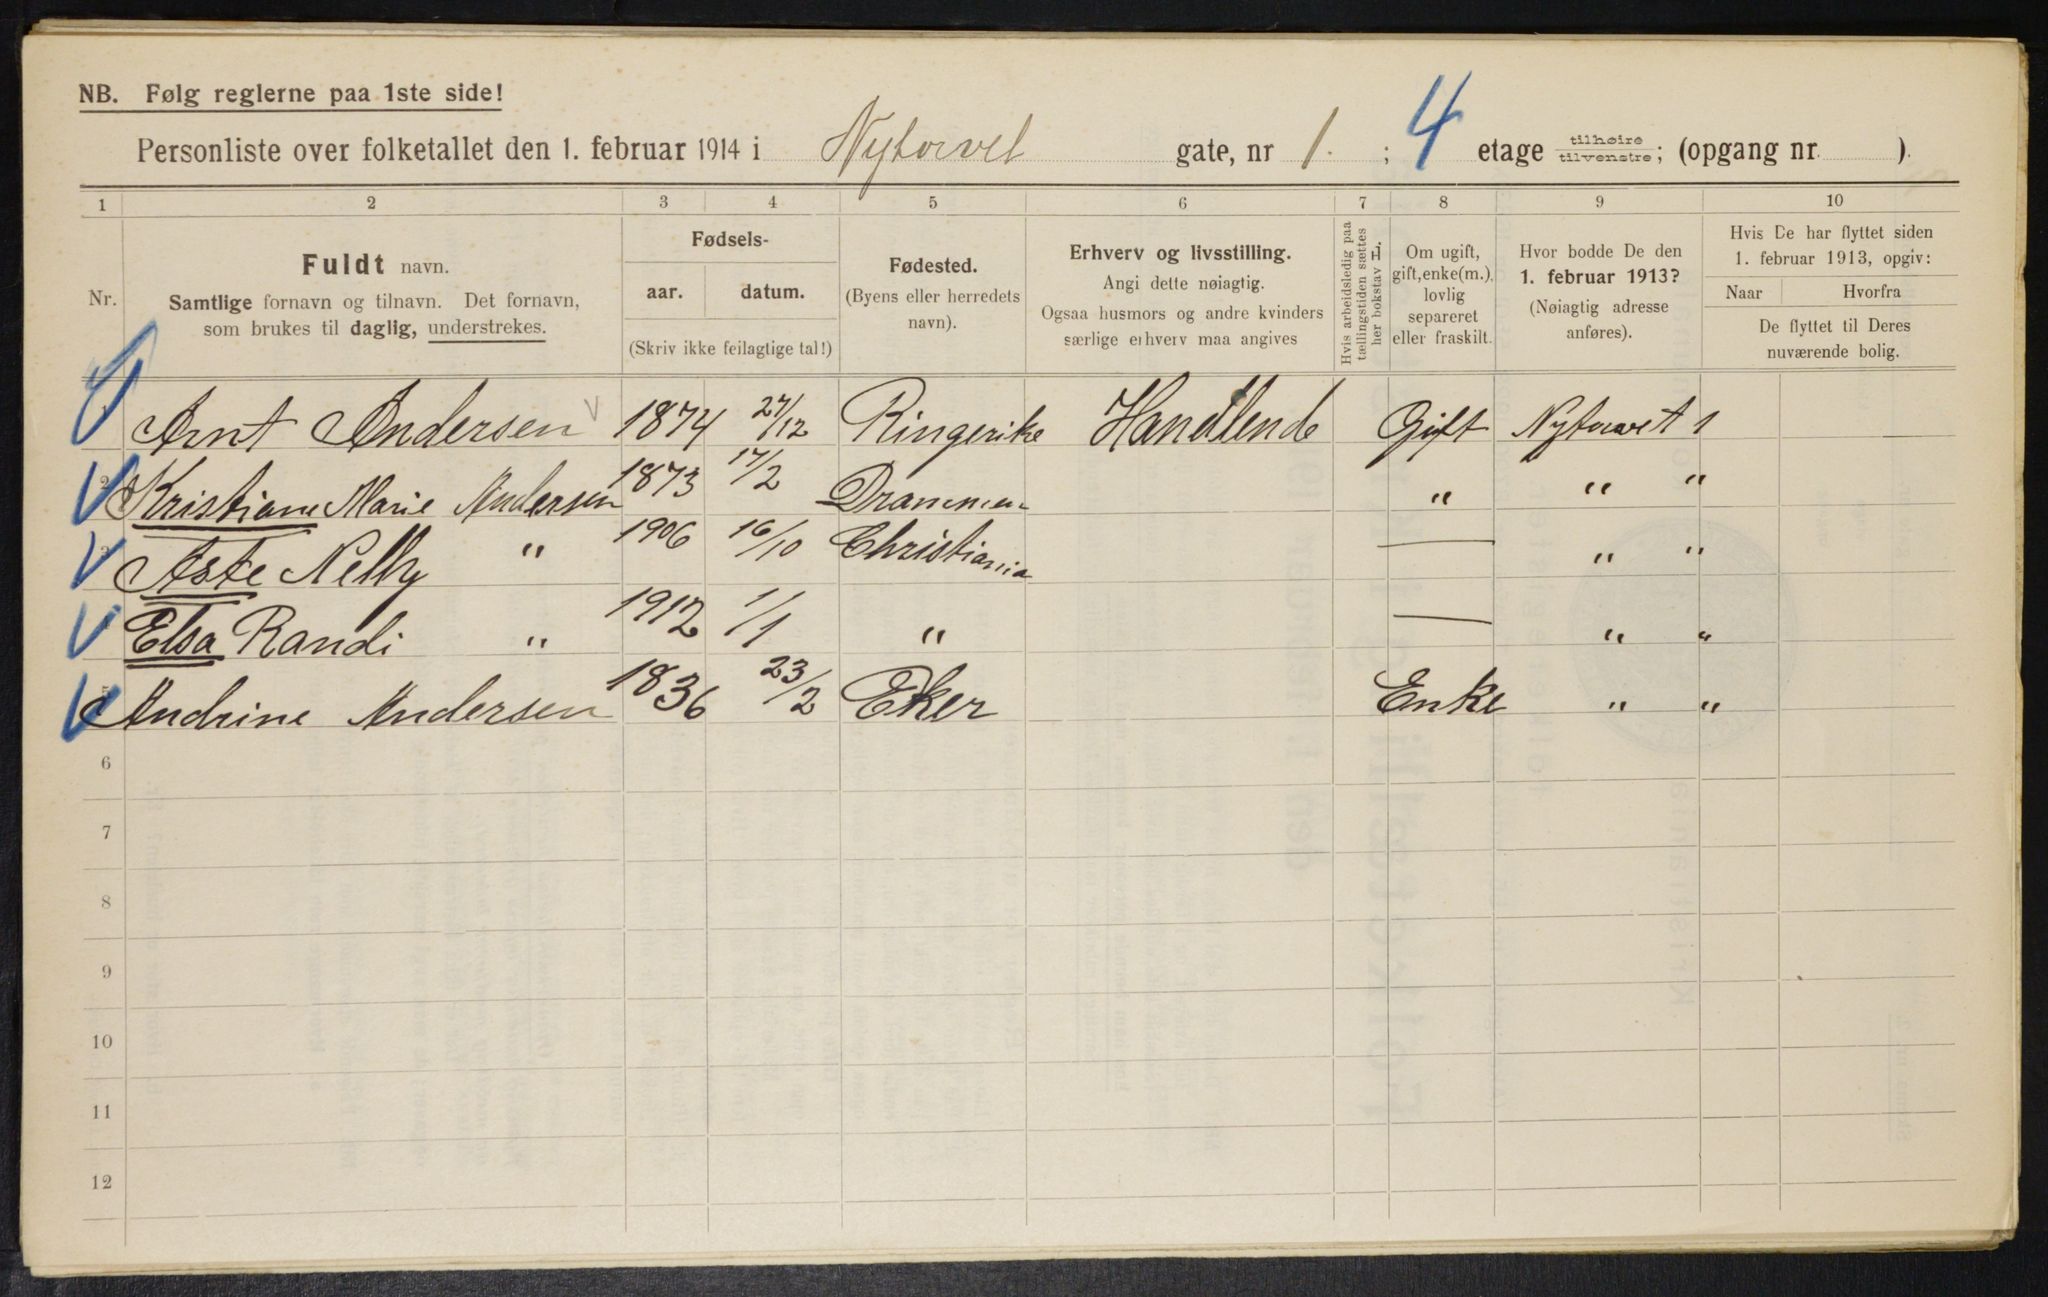 NB. Følg reglerne paa 1ste side!
Personliste over folketallet den 1. februar 1914 i Nytorvet gate, nr 1. ; 4 etage tilhøire tilvenstre; (opgang nr. ).
1 2 3 4 5 6 7 8 9 10
Nr.
Fuldt navn.
Samtlige fornavn og tilnavn. Det fornavn,
som brukes til daglig, understrekes.
Fødsels-
aar. datum.
(Skriv ikke feilagtige tal!)
Fødested.
(Byens eller herredets
navn).
Erhverv og livsstilling.
Angi dette nøiagtig.
Ogsaa husmors og andre kvinders
særlige erhverv maa angives
Hvis arbeidsledig paa
tællingstiden sættes
her bokstav L.
Om ugift,
gift, enke(m.),
lovlig
separeret
eller fraskilt.
Hvor bodde De den
1. februar 1913?
(Nøiagtig adresse
anføres).
Hvis De har flyttet siden
1. februar 1913, opgiv:
Naar Hvorfra
De flyttet til Deres
nuværende bolig.
Arnt Andersen 1874 27/12 Ringerike Handlende Gift Nytorvet 1
2 Kristiane Marie Andersen 1873 17/2 Drammen " " "
3 Aste Nelly " 1906 16/10 Christiania — " "
Elsa Randi " 1912 1/1 " — " "
5 Andrine Andersen 1836 23/2 Eker Enke " "
6
7
8
9
10
11
12